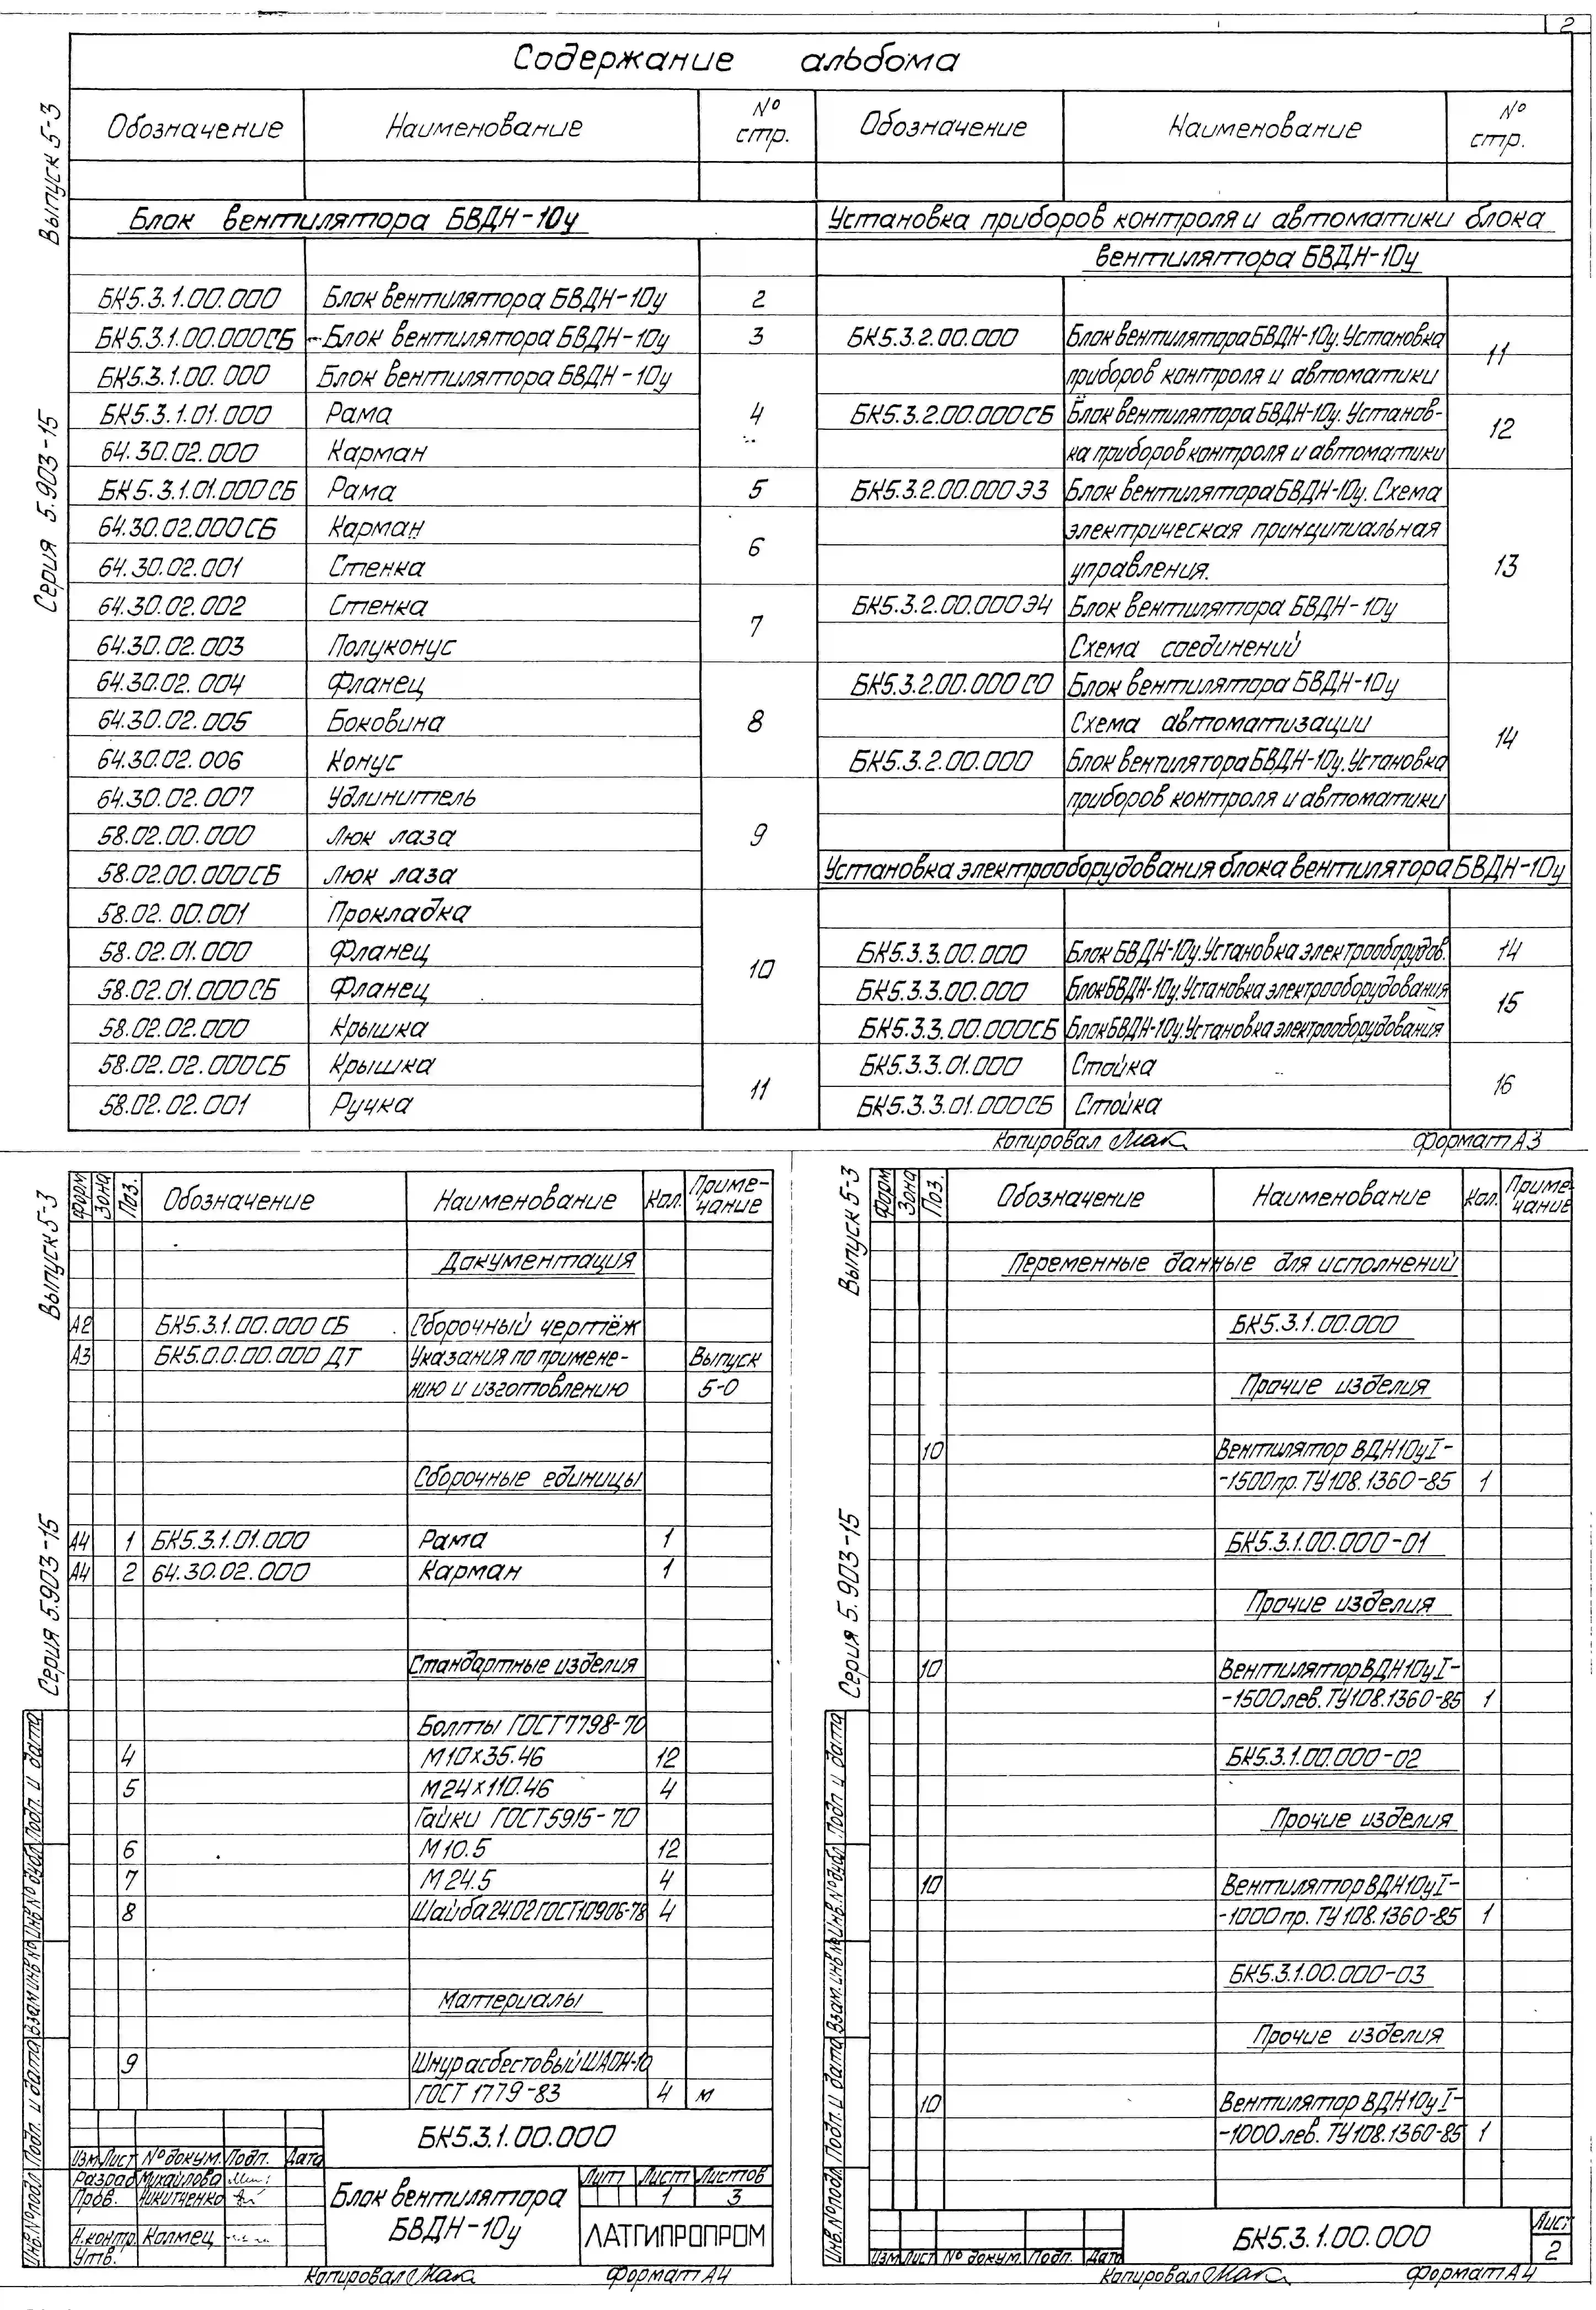 2
Содержание альбома
Выпуск 5-3
Серия 5.903-15
Обозначение Наименование № стр.
Блок вентилятора БВДН-10у
БК5.3.1.00.000 Блок вентилятора БВДН-10у 2
БК5.3.1.00.000СБ Блок вентилятора БВДН-10у 3
БК5.3.1.00.000 Блок вентилятора БВДН-10у
БК5.3.1.01.000 Рама 4
64.30.02.000 Карман
БК5.3.1.01.000СБ Рама 5
64.30.02.000СБ Карман
6
64.30.02.001 Стенка
64.30.02.002 Стенка
7
64.30.02.003 Полуконус
64.30.02.004 Фланец
64.30.02.005 Боковина 8
64.30.02.006 Конус
64.30.02.007 Удлинитель
58.02.00.000 Люк лаза 9
58.02.00.000СБ Люк лаза
58.02.00.001 Прокладка
58.02.01.000 Фланец
10
58.02.01.000СБ Фланец
58.02.02.000 Крышка
58.02.02.000СБ Крышка
11
58.02.02.001 Ручка
Обозначение Наименование № стр.
Установка приборов контроля и автоматики блока
вентилятора БВДН-10у
БК5.3.2.00.000 Блок вентилятора БВДН-10у. Установка
11
приборов контроля и автоматики
БК5.3.2.00.000СБ Блок вентилятора БВДН-10у. Установ-
12
ка приборов контроля и автоматики
БК5.3.2.00.000Э3 Блок вентилятора БВДН-10у. Схема
электрическая принципиальная
управления. 13
БК5.3.2.00.000Э4 Блок вентилятора БВДН-10у
Схема соединений
БК5.3.2.00.000СО Блок вентилятора БВДН-10у
Схема автоматизации
14
БК5.3.2.00.000 Блок вентилятора БВДН-10у. Установка
приборов контроля и автоматики
Установка электрооборудования блока вентилятора БВДН-10у
БК5.3.3.00.000 Блок БВДН-10у. Установка электрооборудов. 14
БК5.3.3.00.000 Блок БВДН-10у. Установка электрооборудования
15
БК5.3.3.00.000СБ Блок БВДН-10у. Установка электрооборудования
БК5.3.3.01.000 Стойка
16
БК5.3.3.01.000СБ Стойка
Копировал Мак Формат А3
Выпуск 5-3
Серия 5.903-15
Форм Зона Поз. Обозначение Наименование Кол. Приме-
чание
Документация
А2 БК5.3.1.00.000 СБ Сборочный чертёж
А3 БК5.0.0.00.000 ДТ Указания по примене- Выпуск
нию и изготовлению 5-0
Сборочные единицы
А4 1 БК5.3.1.01.000 Рама 1
А4 2 64.30.02.000 Карман 1
Стандартные изделия
Болты ГОСТ7798-70
4 М10х35.46 12
5 М24х110.46 4
Гайки ГОСТ5915-70
6 М10.5 12
7 М24.5 4
8 Шайба 24.02 ГОСТ10906-78 4
Материалы
9 Шнур асбестовый ШАОН-10
ГОСТ 1779-83 4 м
Инв.№подл Подп. и дата Взам.инв.№ Инв№дубл Подп. и дата
БК5.3.1.00.000
Изм Лист №докум. Подп. Дата
Разраб Михайлова
Пров. Никитченко
Н.контр. Калмец
Утв.
Блок вентилятора
БВДН-10у
Лит Лист Листов
1 3
ЛАТГИПРОПРОМ
Копировал Мак Формат А4
Выпуск 5-3
Серия 5.903-15
Форм Зона Поз. Обозначение Наименование Кол. Приме-
чание
Переменные данные для исполнений
БК5.3.1.00.000
Прочие изделия
10 Вентилятор ВДН10уI-
-1500пр. ТУ108.1360-85 1
БК5.3.1.00.000-01
Прочие изделия
10 Вентилятор ВДН10уI-
-1500лев. ТУ108.1360-85 1
БК5.3.1.00.000-02
Прочие изделия
10 Вентилятор ВДН10уI-
-1000пр. ТУ108.1360-85 1
БК5.3.1.00.000-03
Прочие изделия
10 Вентилятор ВДН10уI-
-1000лев. ТУ108.1360-85 1
Инв.№подл Подп. и дата Взам.инв№ Инв.№дубл Подп и дата
Изм Лист № докум. Подп. Дата
БК5.3.1.00.000
Лист
2
Копировал Мак Формат А4